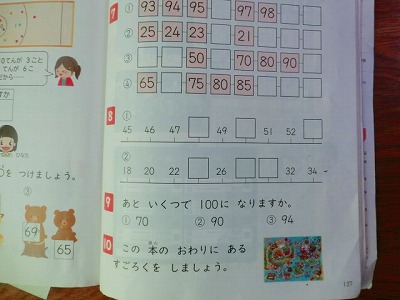 0てんが 3こと
てんが 6こ
だから
すか
を つけましょう。
③
69
65
7
① 93 94 95 □ 97 98 □ □
② 25 24 23 □ 21 □ □ □
③ □ □ 50 □ 70 80 90 □
④ 65 □ 75 80 85 □ □ □
8 ①
45 46 47 □ 49 □ 51 52 □
②
18 20 22 □ 26 □ □ 32 34
9 あと いくつで 100に なりますか。
① 70 ② 90 ③ 94
10 この 本の おわりに ある
ほん
すごろくを しましょう。
137